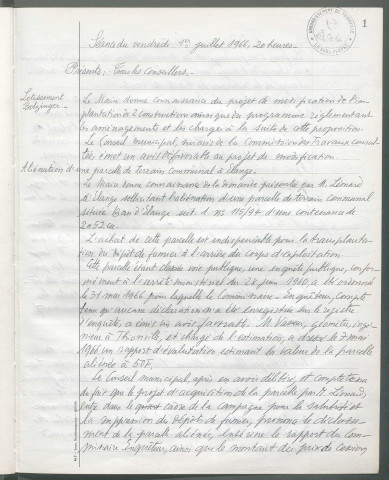 1
Séance du vendredi 1er juillet 1966, 20 heures.
Présents : Tous les conseillers.
Lotissement
Le Maire donne connaissance du projet de modification de l'im-
plantation de 2 constructions ainsi que du programme réglementant
les aménagements et les charges à la suite de cette proposition.
Le Conseil municipal, sur avis de la Commission des Travaux consul-
tée émet un avis défavorable au projet de modification.
Aliénation d'une parcelle de terrain communal à Elange.
Le Maire donne connaissance de la demande présentée par M. Léonard
d'Elange sollicitant l'aliénation d'une parcelle de terrain communal
située Ban d'Elange sect. 1 nos 115/94 d'une contenance de
2a52ca.
L'achat de cette parcelle est indispensable pour la transplanta-
tion du dépôt de fumier à l'arrière du corps d'exploitation.
Cette parcelle étant classée voie publique, une enquête publique, confor-
mément à l'arrêté ministériel du 28 juin 1960, a été ordonnée
le 31 mai 1966 pour laquelle le Commissaire-Enquêteur, compte
tenu qu'aucune déclaration n'a été enregistrée sur le registre
d'enquête, a émis un avis favorable. M. géomètre,
à Thionville, chargé de l'estimation, a dressé le 7 mai
1966 un rapport d'évaluation estimant la valeur de la parcelle
aliénée à 50F.
Le Conseil municipal, après en avoir délibéré, et compte tenu
du fait que le projet d'acquisition de la parcelle par M. Léonard,
entre dans le cadre de la campagne pour la salubrité et
la suppression du dépôt de fumier, prononce le déclasse-
ment de la parcelle aliénée, entérine le rapport du Com-
missaire Enquêteur, ainsi que le montant du prix de cession